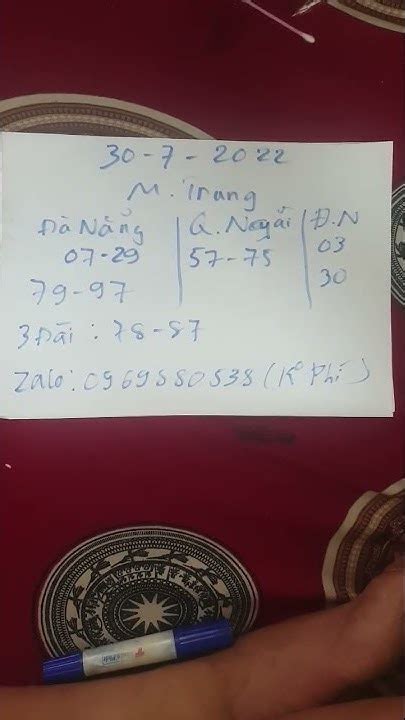 30-7-2022
M. Trung
Đà Nẵng | Q. Ngãi | Đ.N
07-29 | 57-75 | 03
79-97 | 30
3 Đài: 78-87
Zalo: 0969880838 (K° Phí)